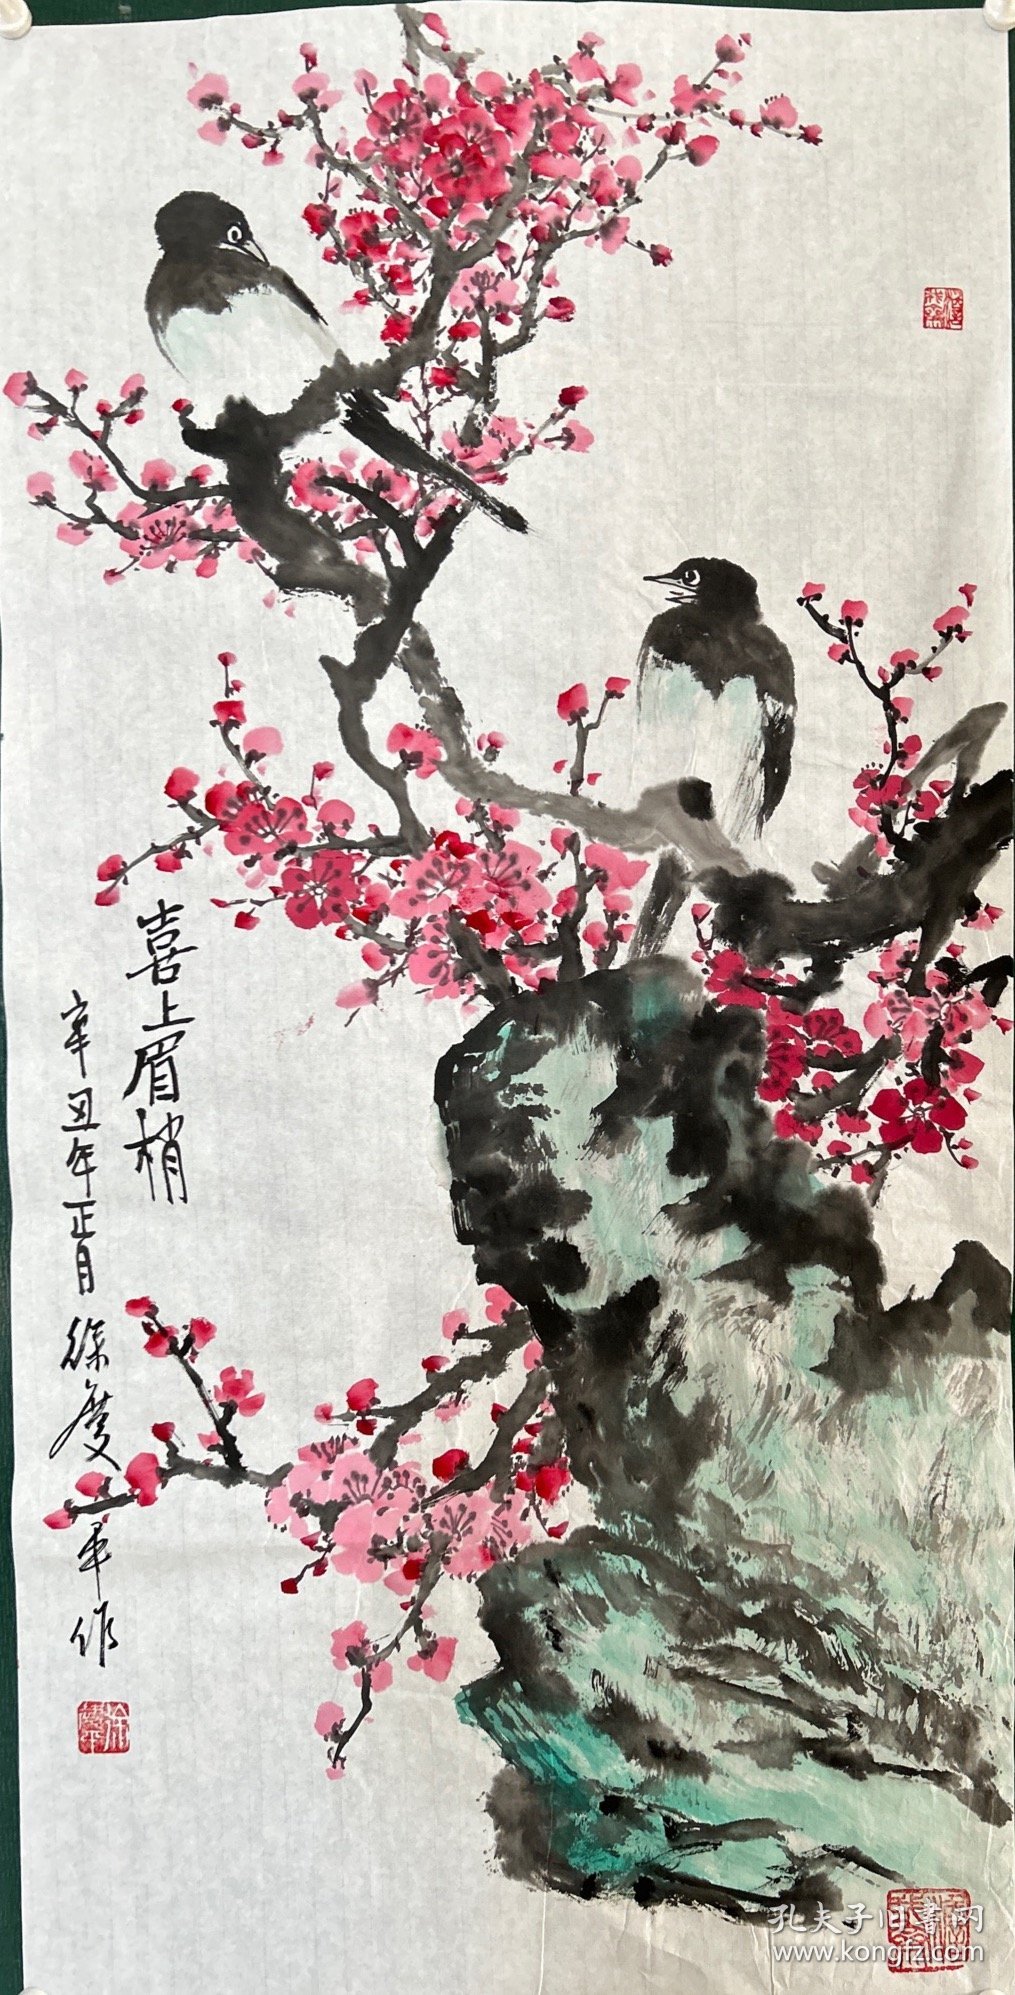 喜上眉梢
辛丑年正月徐庆军作
孔夫子旧书网
www.kongfz.com